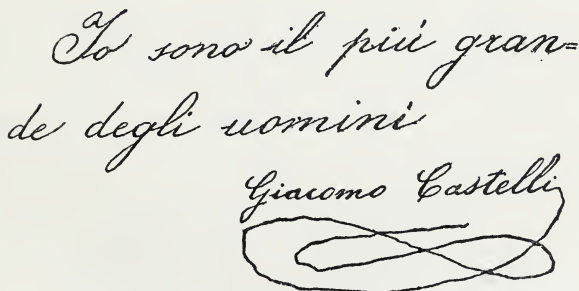 Io sono il più gran=
de degli uomini
Giacomo Castelli